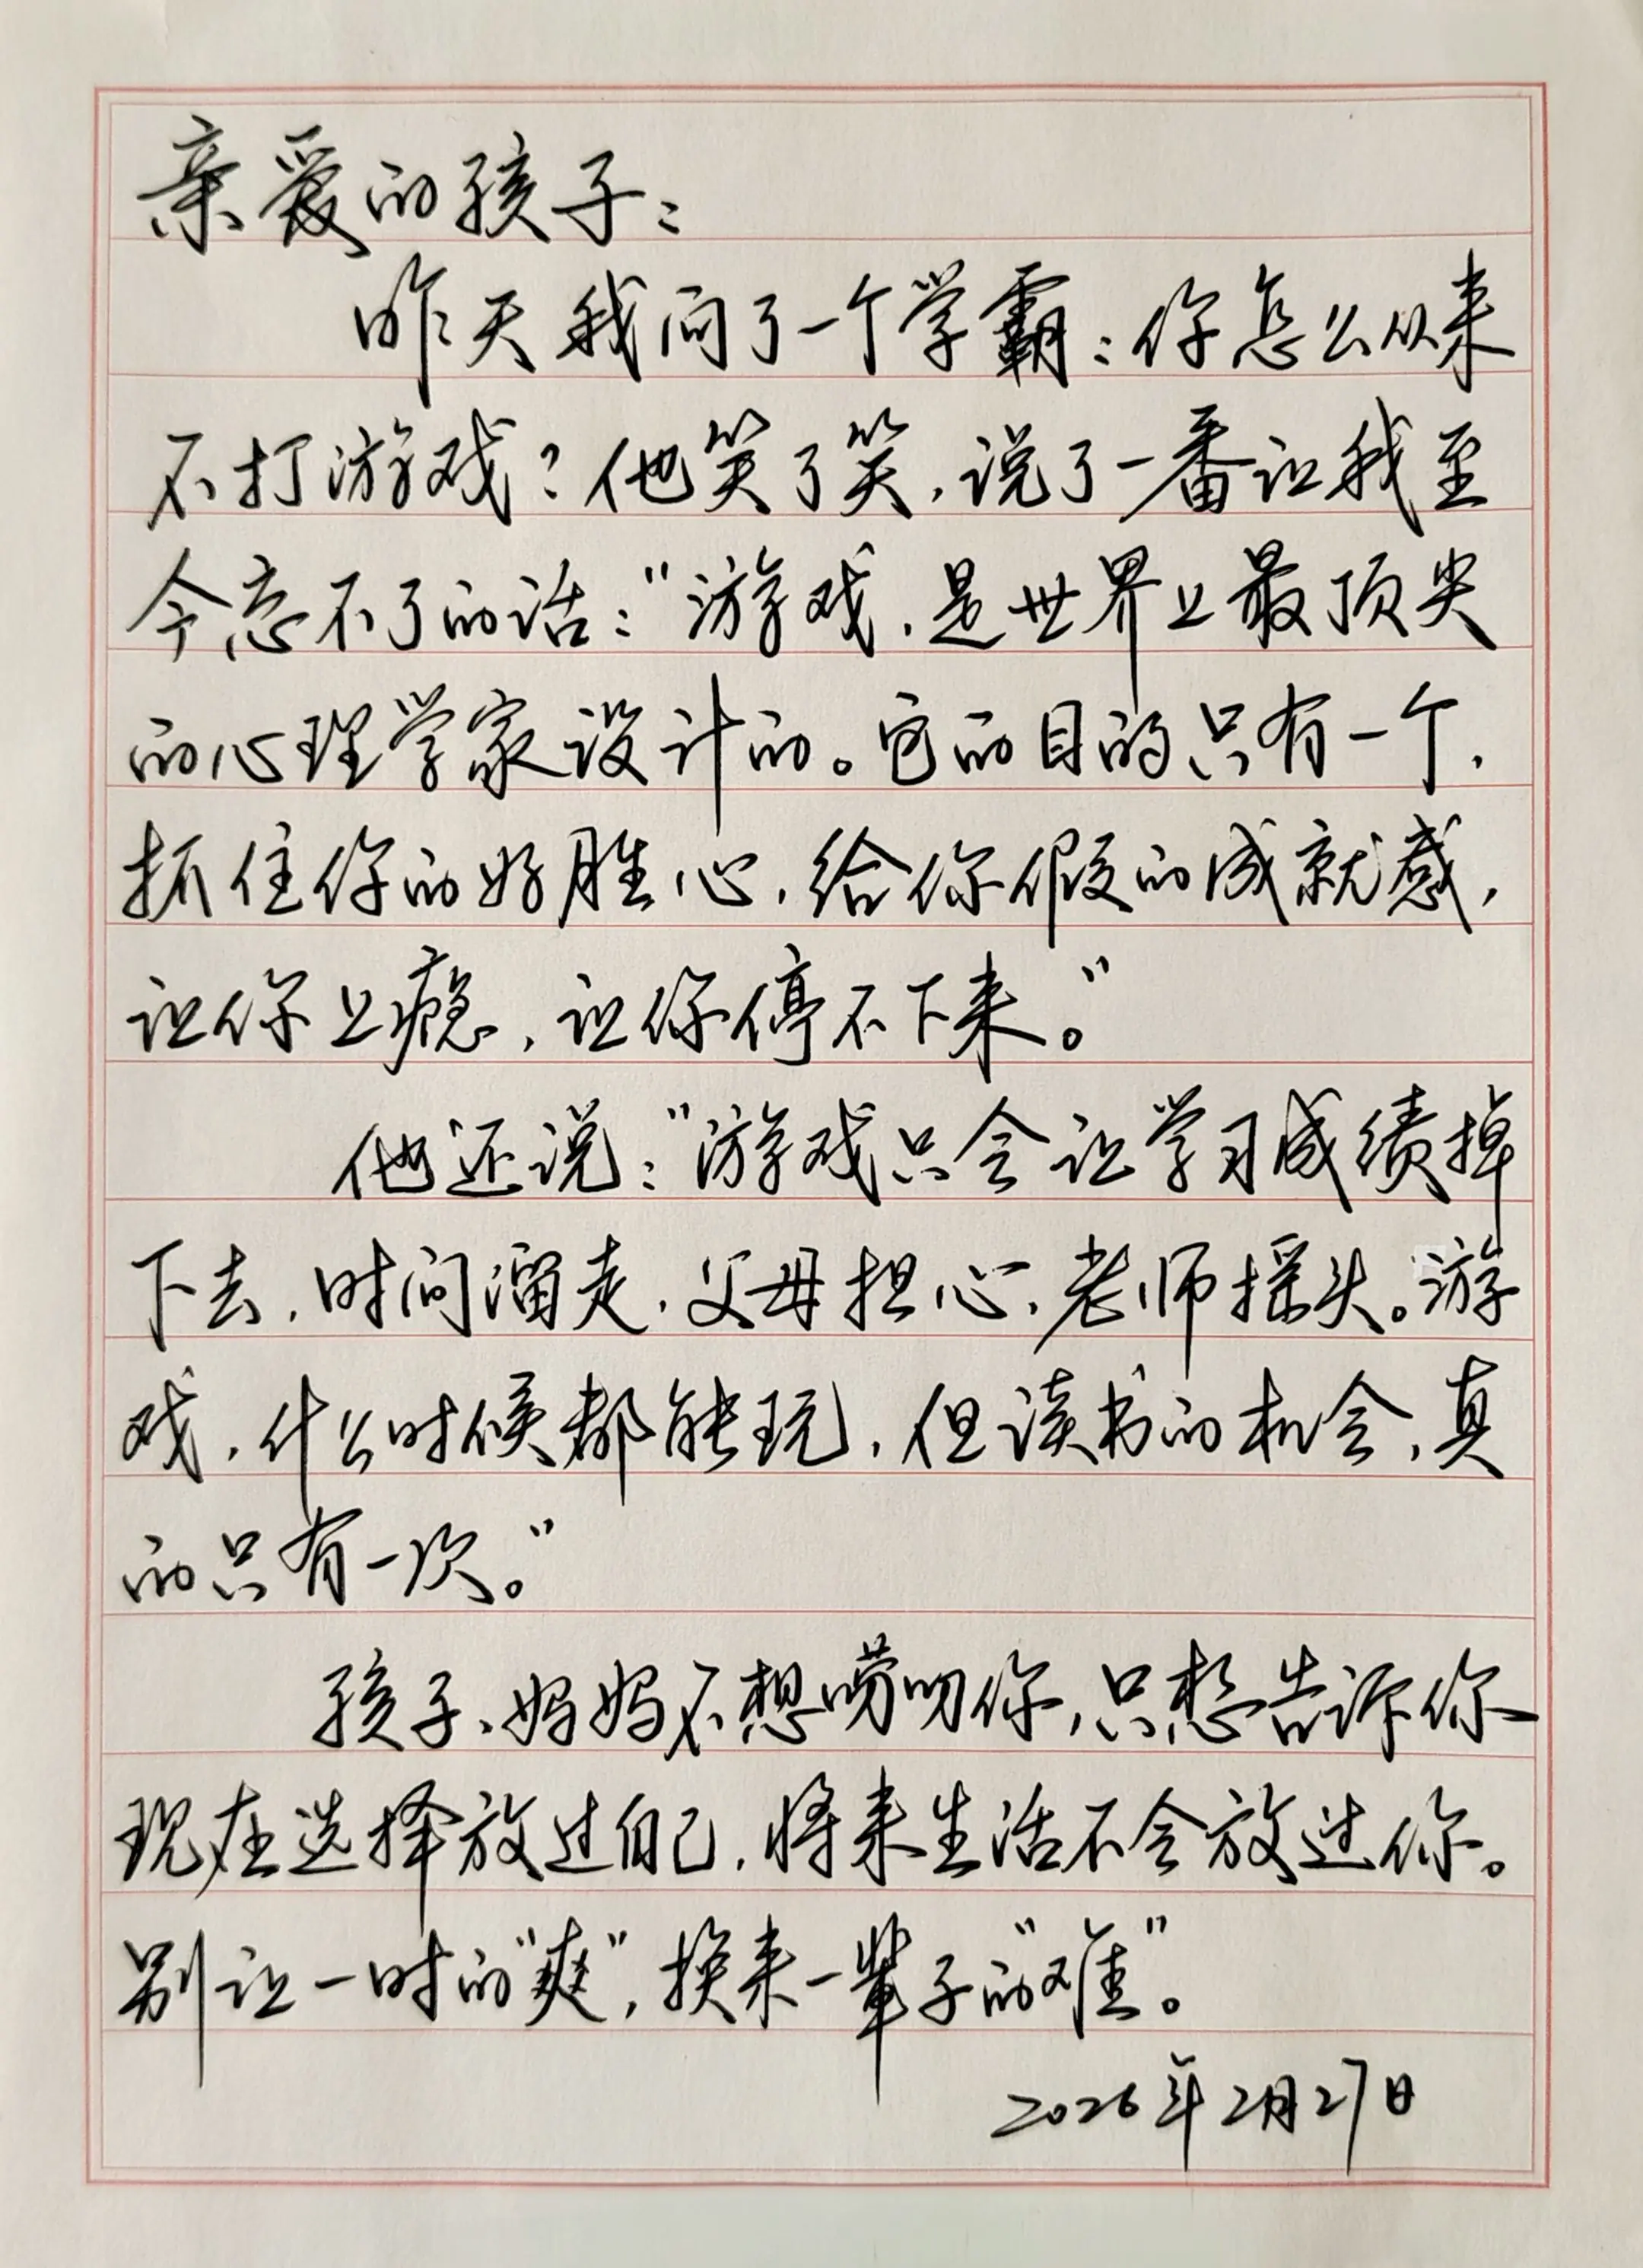 亲爱的孩子：
昨天我问了一个学霸：你怎么从来
不打游戏？他笑了笑，说了一番让我至
今忘不了的话：“游戏，是世界上最顶尖
的心理学家设计的。它的目的只有一个，
抓住你的好胜心，给你假的成就感，
让你上瘾，让你停不下来。”
他还说：“游戏只会让学习成绩掉
下去，时间溜走，父母担心，老师摇头。游
戏，什么时候都能玩，但读书的机会，真
的只有一次。”
孩子、妈妈不想唠叨你，只想告诉你
现在选择放过自己，将来生活不会放过你。
别让一时的“爽”，换来一辈子的“难”。
2026年2月27日